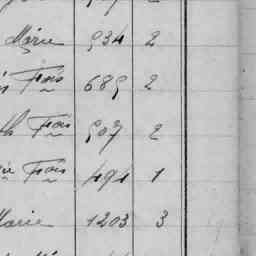 Marie 534 2
Fois 685 2
th Fois 507 2
Fois 494 1
Marie 1203 3